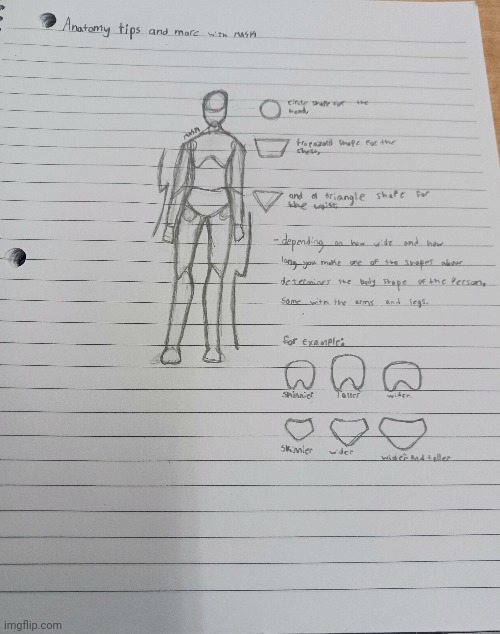 Anatomy tips and more with MASM
circle shape for the
head,
MASM
trapazoid shape for the
chest,
and a triangle shape for
the waist.
- depending on how wide and how
long you make one of the shapes above
determines the body shape of the Person,
same with the arms and legs.
for example:
skinnier taller wider
skinnier wider wider and taller
imgflip.com